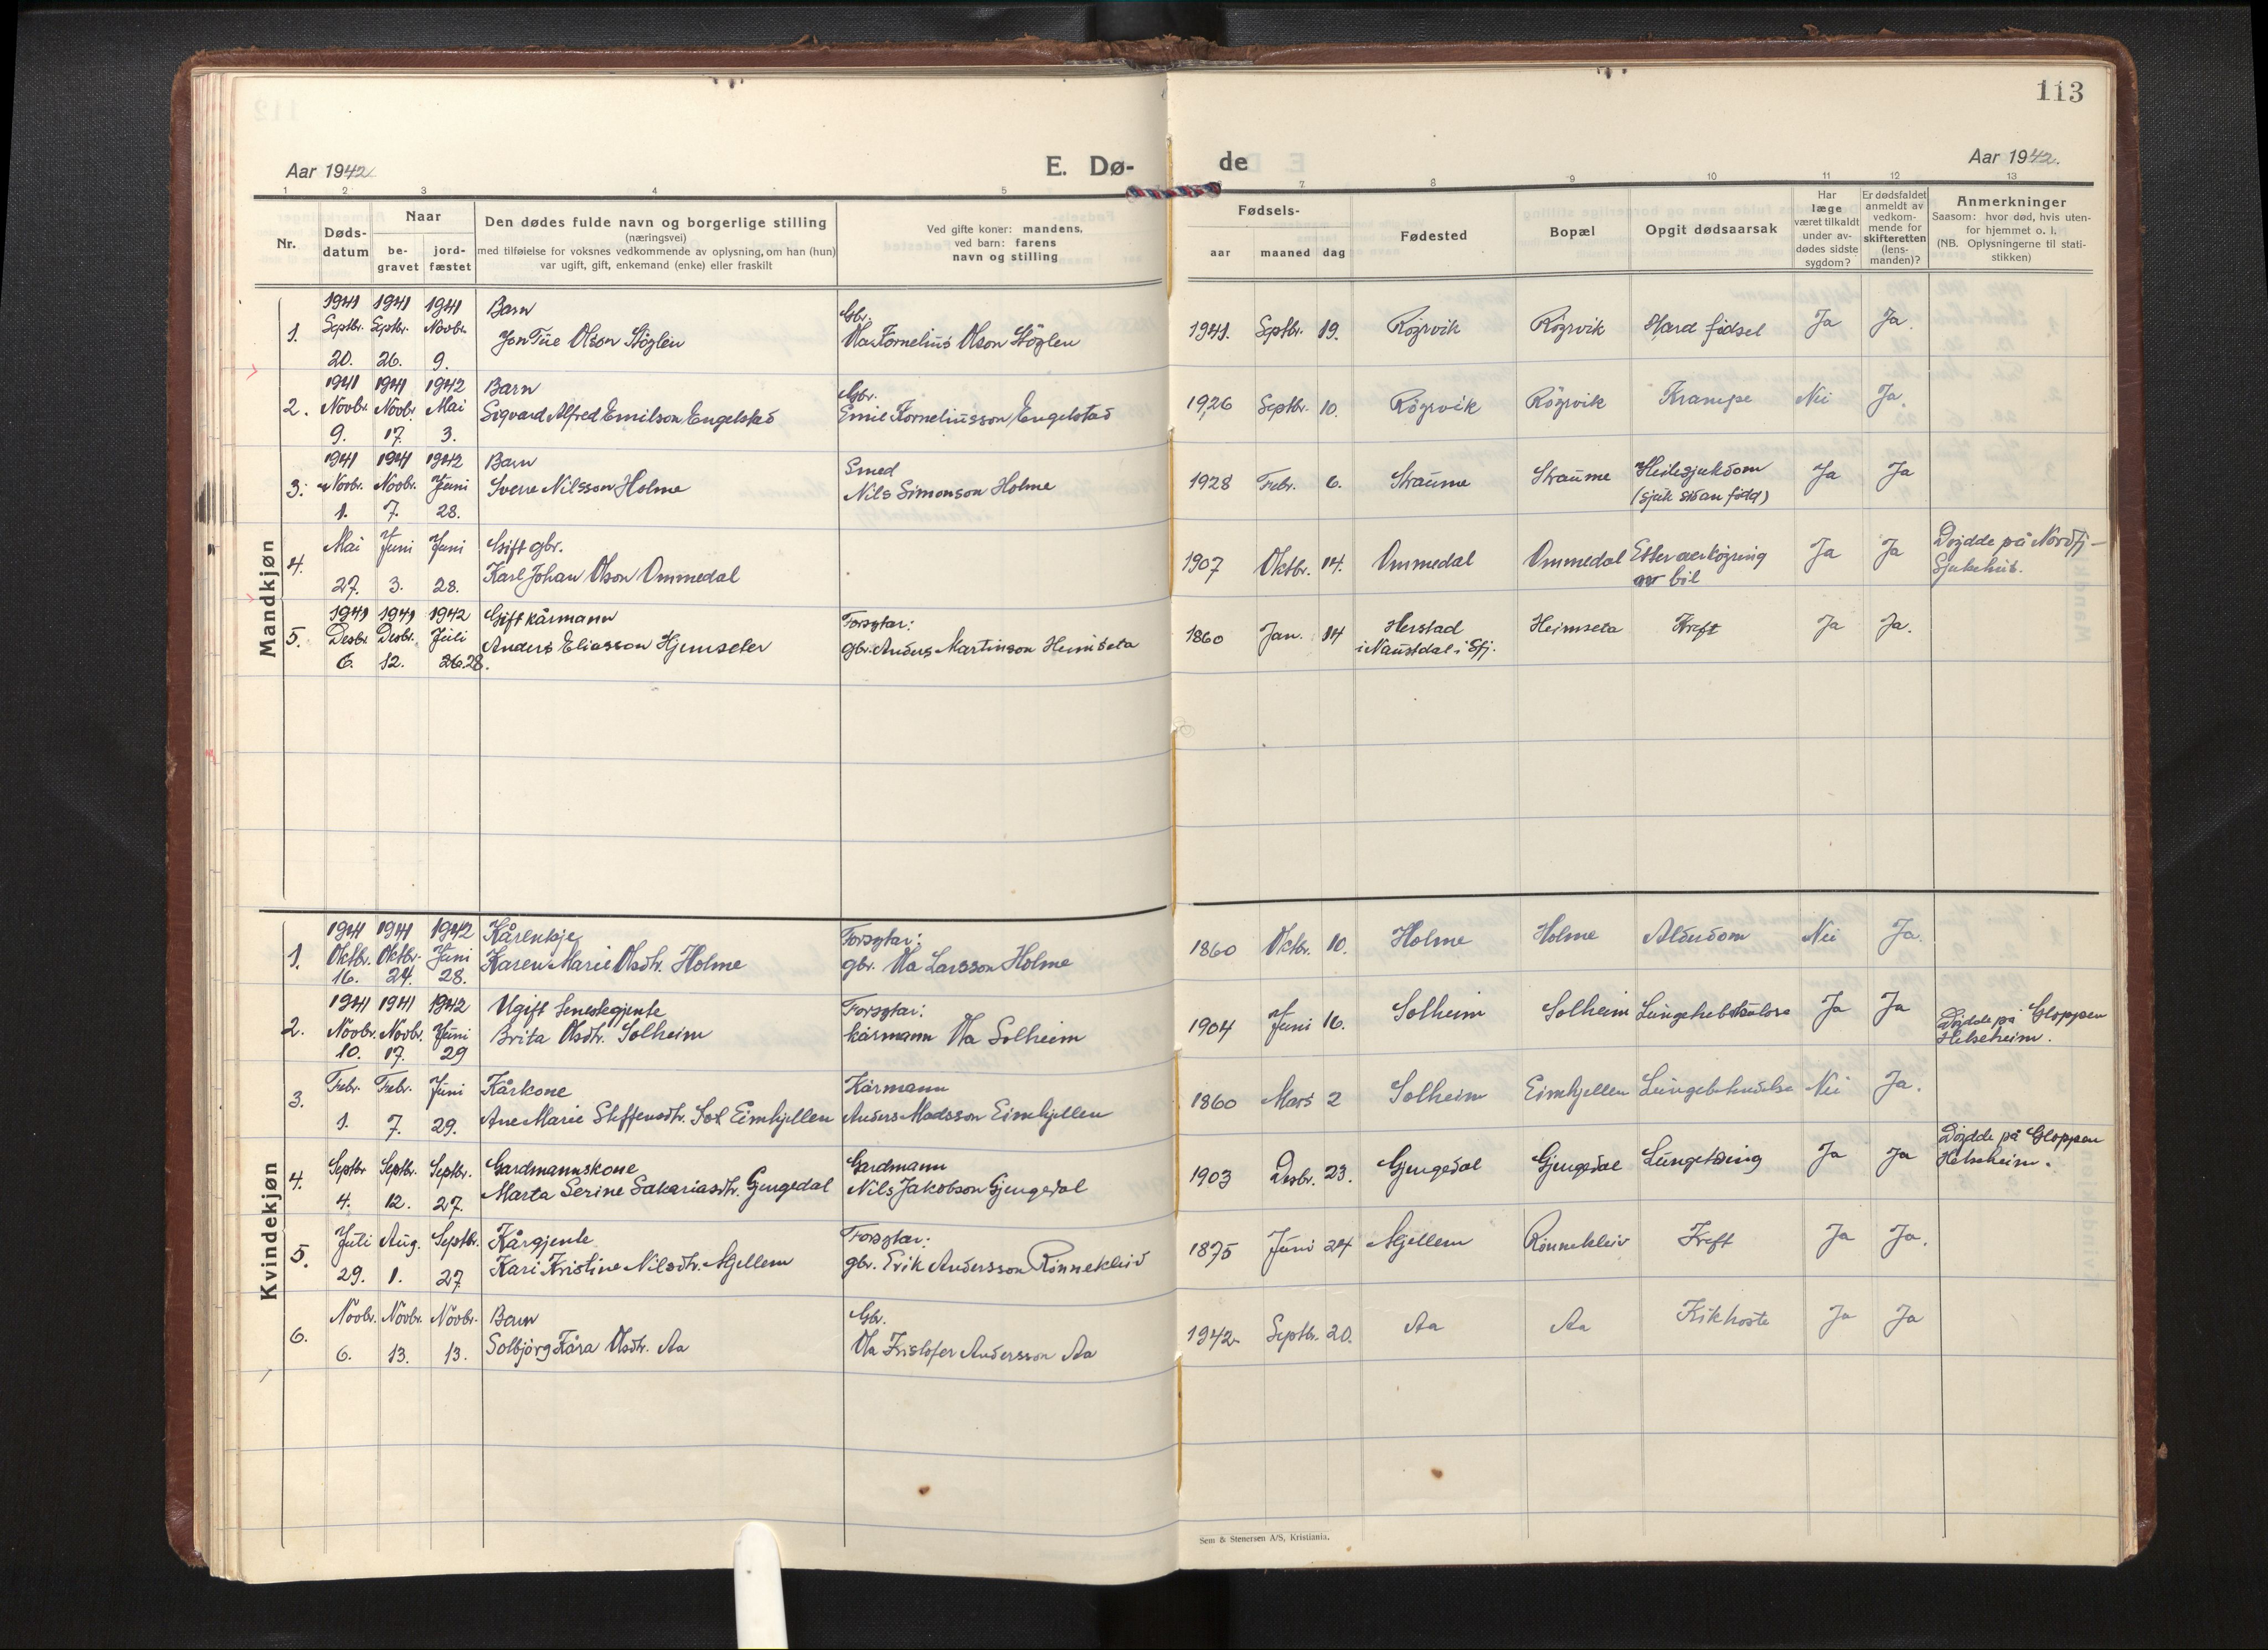 113
Aar 1942
E. Dø-
de
Aar 1942.
1 2 3 4 5 7 8 9 10 11 12 13
Nr.
Døds-
datum
Naar
be-
gravet
jord-
fæstet
Den dødes fulde navn og borgerlige stilling
(næringsvei)
med tilføielse for voksnes vedkommende av oplysning, om han (hun)
var ugift, gift, enkemand (enke) eller fraskilt
Ved gifte koner: mandens,
ved barn: farens
navn og stilling
Fødsels-
aar maaned dag
Fødested
Bopæl
Opgit dødsaarsak
Har
læge
været tilkaldt
under av-
dødes sidste
sygdom?
Er dødsfaldet
anmeldt av
vedkom-
mende for
skifteretten
(lens-
manden)?
Anmerkninger
Saasom: hvor død, hvis uten-
for hjemmet o. l.
(NB. Oplysningerne til stati-
stikken)
Mandkjøn
1941 1941 1941 Barn Gbr.
1. Septbr. Septbr. Novbr. Jon Tue Olson Støylen Ola Kornelius Olson Støylen 1941. Septbr. 19. Røyrvik Røyrvik Hard fødsel Ja Ja.
20. 26. 9.
1941 1941 1942 Barn Gbr.
2. Novbr. Novbr. Mai Sigvard Alfred Emilson Engelstad Emil Korneliusson Engelstad 1926 Septbr. 10. Røyrvik Røyrvik Krampe Nei Ja.
9. 17. 3.
1941 1941 1942 Barn Smed
3. Novbr. Novbr. Juni Sverre Nilsson Holme Nils Simonson Holme 1928 Febr. 6. Straume Straume Heilesjukdom Ja Ja
1. 7. 28. (sjuk sidan fødd)
Mai Juni Juni Gift gbr.
4. 27. 3. 28. Karl Johan Olson Ommedal 1907 Oktbr. 14. Ommedal Ommedal Etter overkøyring Ja Ja Døydde på Nordfj-
av bil Sjukehus.
1941 1941 1942 Gift kårmann Forsytar:
5. Desbr. Desbr. Juli Anders Eliasson Hjemseter gbr. Anders Martinson Heimseta 1860 Jan. 14 Herstad Heimseta Kreft Ja Ja.
6. 12. 26.28. i Naustdal i Sfj.
Kvindekjøn
1941 1941 1942 Kårenkje Forsytar:
1. Oktbr. Oktbr. Juni Karen Marie Olsdtr. Holme gbr. Ola Larsson Holme 1860 Oktbr. 10. Holme Holme Alderdom Nei Ja.
16. 24. 28.
1941 1941 1942 Ugift tenestegjente Forsytar:
2. Novbr. Novbr. Juni Brita Olsdtr. Solheim kårmann Ola Solheim 1904 Juni 16. Solheim Solheim Ja Ja Døydde på Gloppen
10. 17. 29 Helseheim.
Febr. Febr. Juni Kårkone Kårmann
3. 1. 7. 29. Ane Marie Steffensdtr. Eimhjellen Anders Madsson Eimhjellen 1860 Mars 2 Solheim Eimhjellen Lungebetendelse Nei Ja.
Septbr. Septbr. Septbr. Gardmannskone Gardmann
4. 4. 12. 27. Marta Serine Sakariasdtr. Gjengedal Nils Jakobson Gjengedal 1903 Desbr. 23. Gjengedal Gjengedal Lungetæring Ja Ja Døydde på Gloppen
Helseheim.
Juli Aug. Septbr. Kårgjente Forsytar:
5. 29. 1. 27 Kari Kristine Nilsdtr. Mjellem gbr. Erik Andersson Rönnekleiv 1875 Juni 24 Mjellem Rönnekleiv Kreft Ja Ja.
Novbr. Novbr. Novbr. Barn Gbr.
6. 6. 13. 13. Solbjörg Kåra Olsdtr. Aa Ola Kristofer Andersson Aa 1942 Septbr. 20. Aa Aa Kikhoste Ja Ja
Sem & Stenersen A/S, Kristiania.